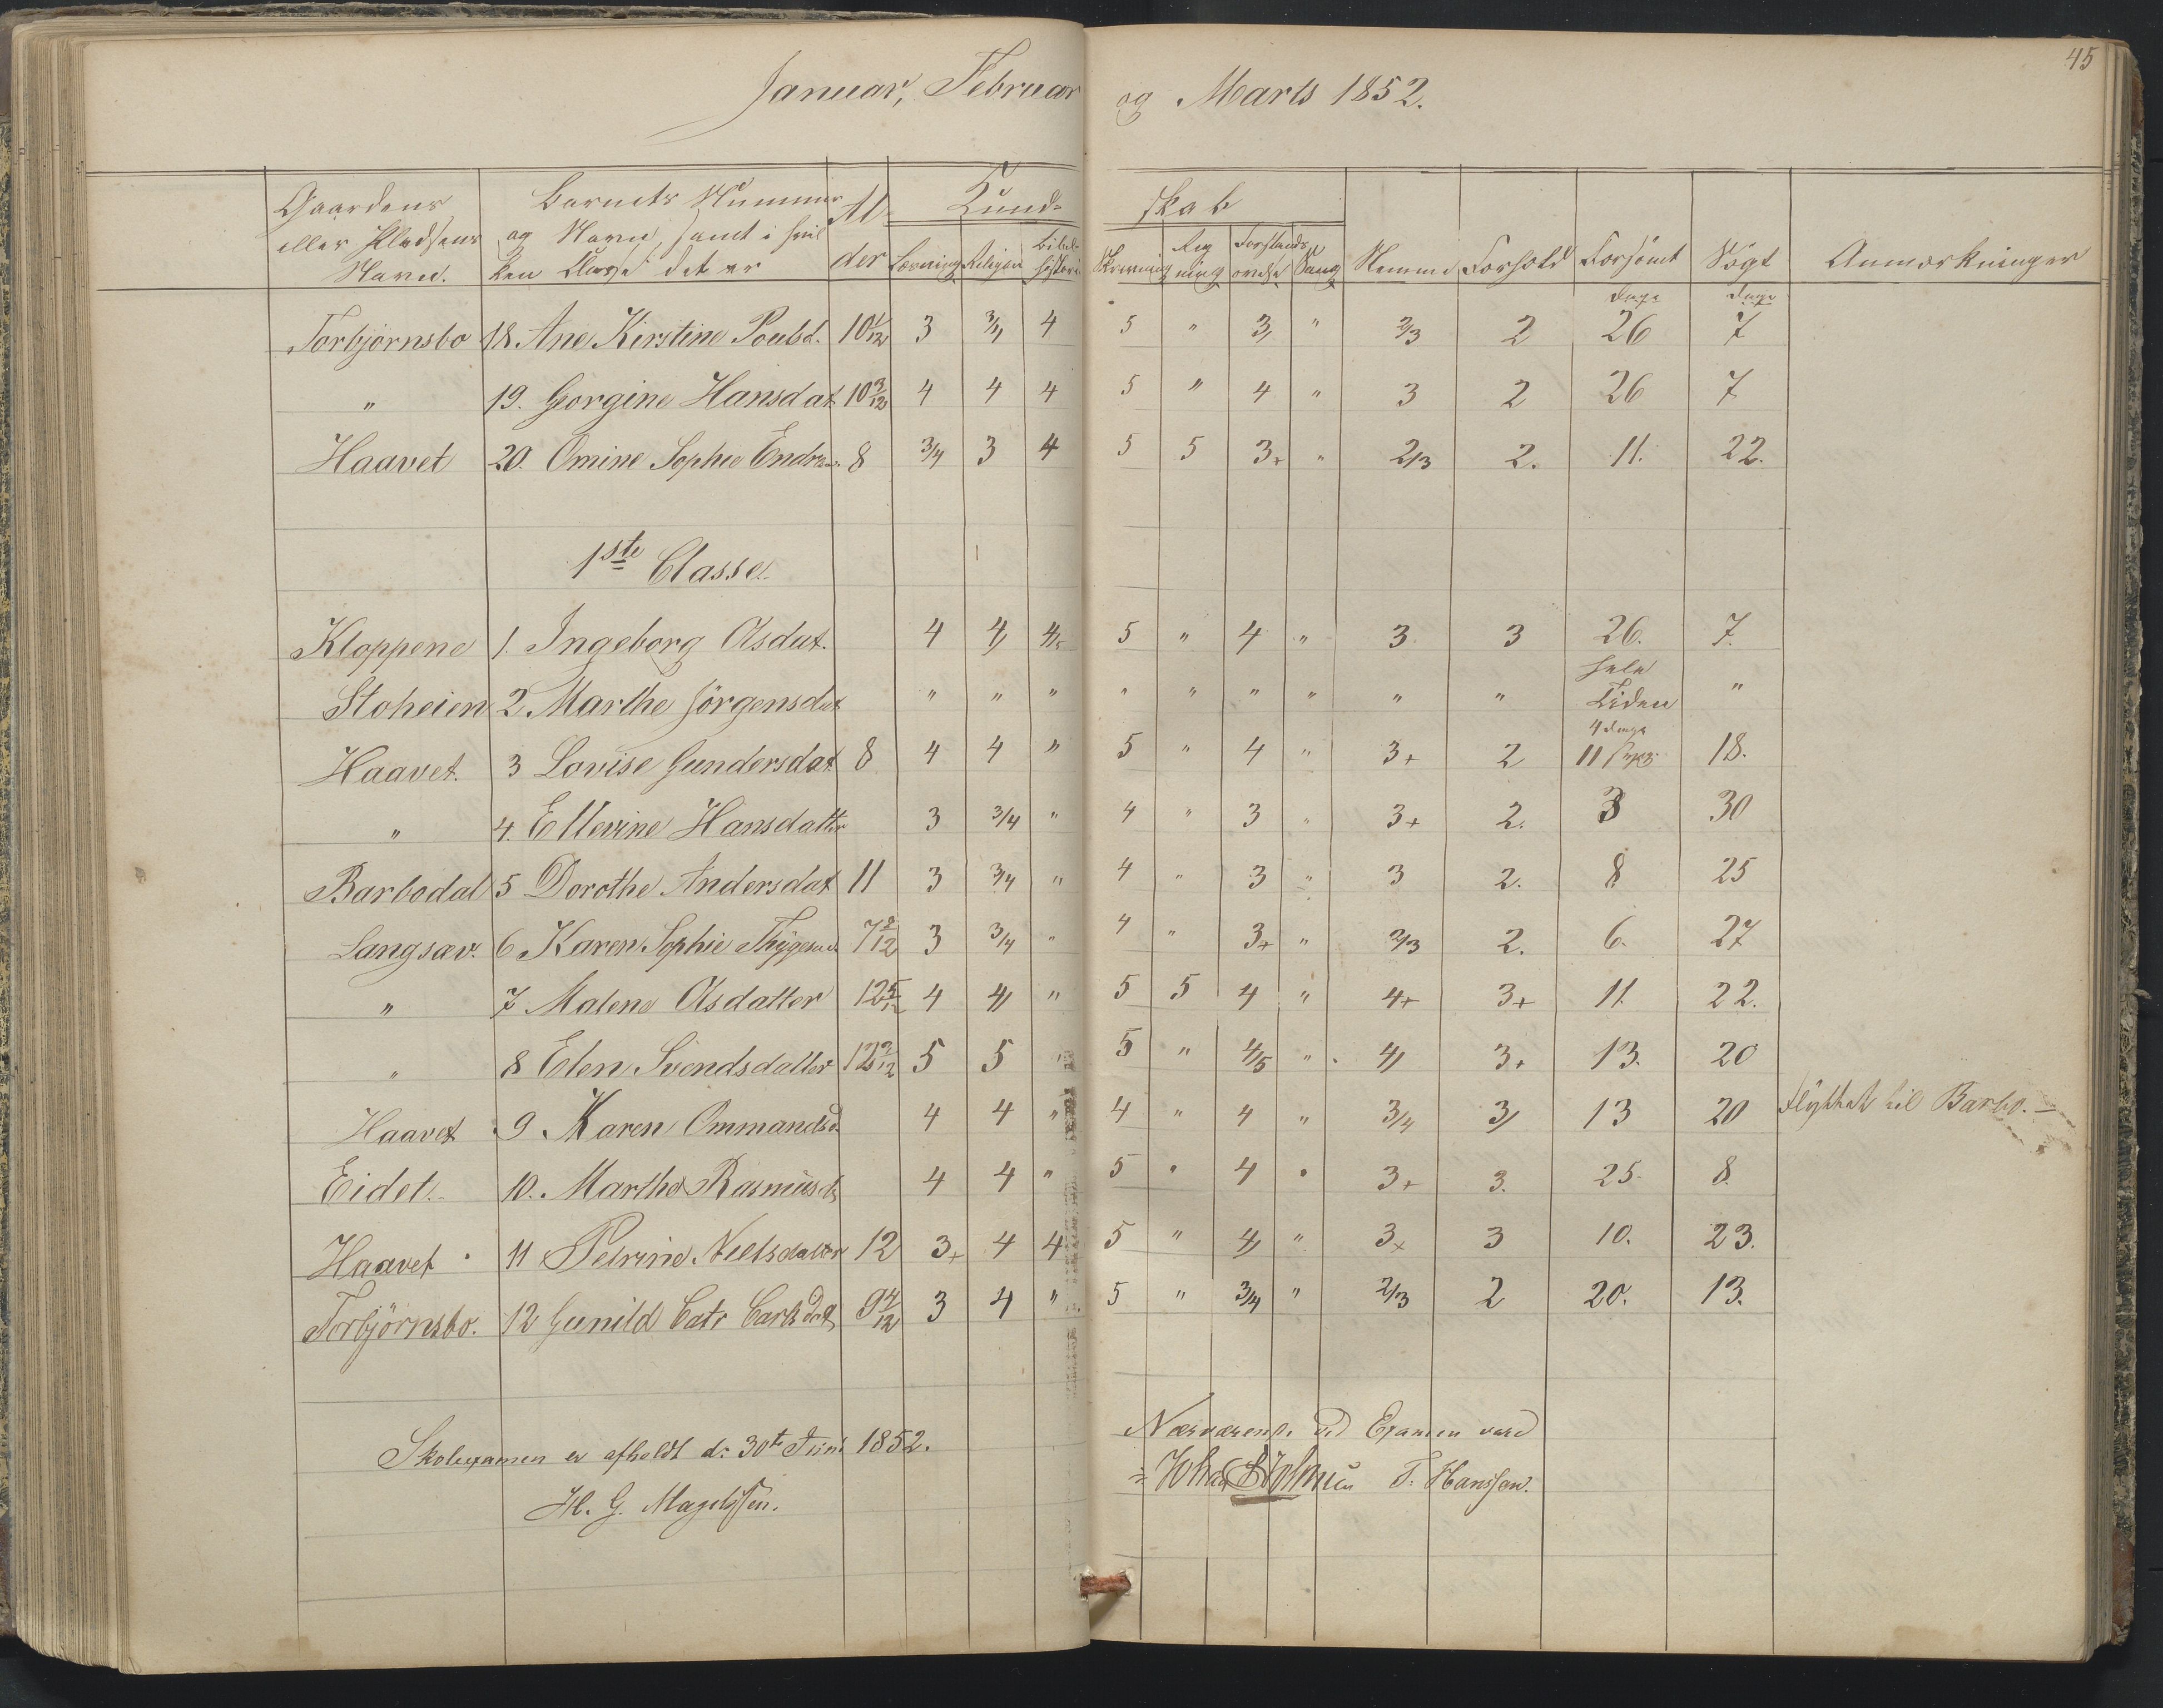 45
Januar, Februar og Marts 1852.
Gaardens eller Pladsens Navn. | Barnets Nummer og Navn, samt i hvilken Classe det er | Alder | Kundskab | Nemme | Forhold | Forsömt | Sögt | Anmærkninger
Læsning | Religion | Bibelhistorie | Skrivning | Regning | Forstandsøvelse | Sang
Dage | Dage
Torbjörnsbo 18. Ane Kirstine Poulsd. 10 1/12 3 3/4 4 5 " 3/ " 2/3 2 26 7
" 19. Gorgine Hansdat. 10 3/12 4 4 4 5 " 4 " 3 2 26 7
Haavet 20. Omine Sophie 8 3/4 3 4 5 5 3+ " 2/3 2. 11. 22.
1ste Classe.
Kloppene 1. Ingeborg Olsdat. 4 4/ 4/5 5 " 4 " 3 3 26. 7.
Stoheien 2 Marthe Jörgensdat " " " " " " " " " hele Tiden "
Haavet. 3 Lovise Gundersdat 8 4 4 " 5 " 4 " 3+ 2 4 dage 11 18.
" 4. Ellevine Hansdatter 3 3/4 " 4 " 3 " 3+ 2. 3 30
Barbodal 5 Dorothe Andersdat 11 3 3/4 " 4 " 3 " 3 2. 8 25
Langsæv. 6 Karen Sophie 3 3/4 " 4 " 3+ " 2/3 2. 6. 27
" 7 Malene Olsdatter 12 5/12 4 4/ " 5 5 4 " 4+ 3+ 11. 22.
" 8 Elen Svendsdatter 12 2/12 5 5 " 5 " 4/5 " 4/ 3+ 13. 20
Haavet 9 Karen Ommandsd. 4 4 " 4 " 4 " 3/4 3/ 13 20 Flyttet til Barbo. —
Eidet. 10. Marthe Rasmusd. 4 4 " 5 " 4 " 3+ 3. 25. 8.
Haavet 11 Petrine Nielsdatter 12 3+ 4 4 5 " 4/ " 3+ 3 10. 23.
Torbjörnsbo. 12 Gunild Catr Carlsdat 9 4/12 3 4 " 5 " 3/4 " 2/3 2 20. 13.
Skoleexamen er afholdt d: 30te Juni 1852.
H. G. Magelssen.
Nærværende ved Examen vare
T. Hanssen.